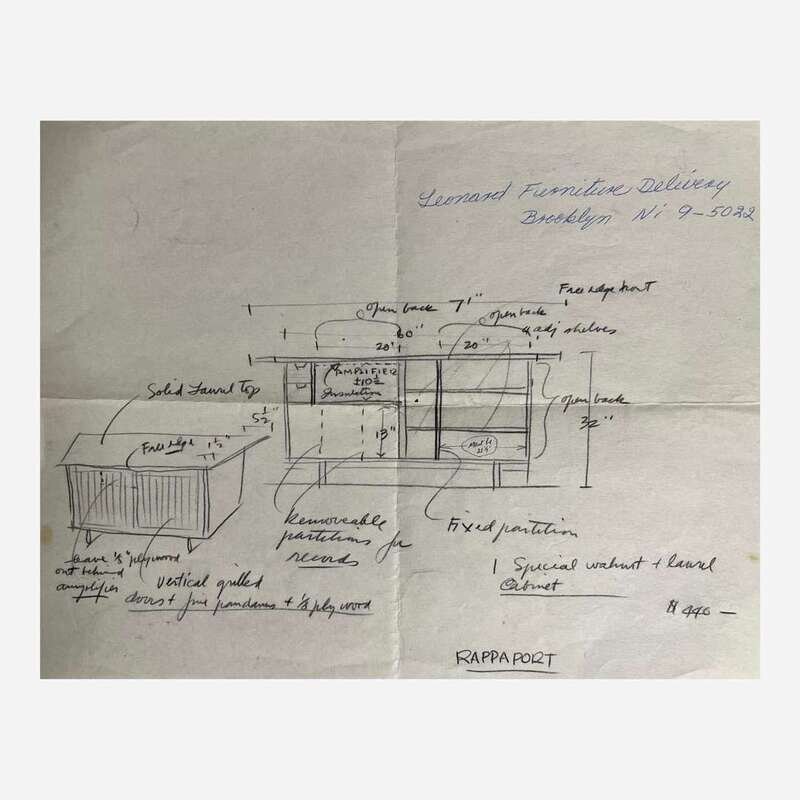 Leonard Furniture Delivery
Brooklyn Ni 9-5022
Free edge front
7'1"
open back
open back
60"
4 adj shelves
20"
20"
AMPLIFIER
±10½
Insulation
Solid Laurel Top
5½"
open back
32"
Free edge
1½"
13"
Must be
Removeable
partitions for
records
Fixed partition
Leave ⅛" plywood
out behind
amplifier
vertical grilled
doors + fine pandanus + ⅛ plywood
1 Special walnut + laurel
Cabinet
$ 440 —
RAPPAPORT